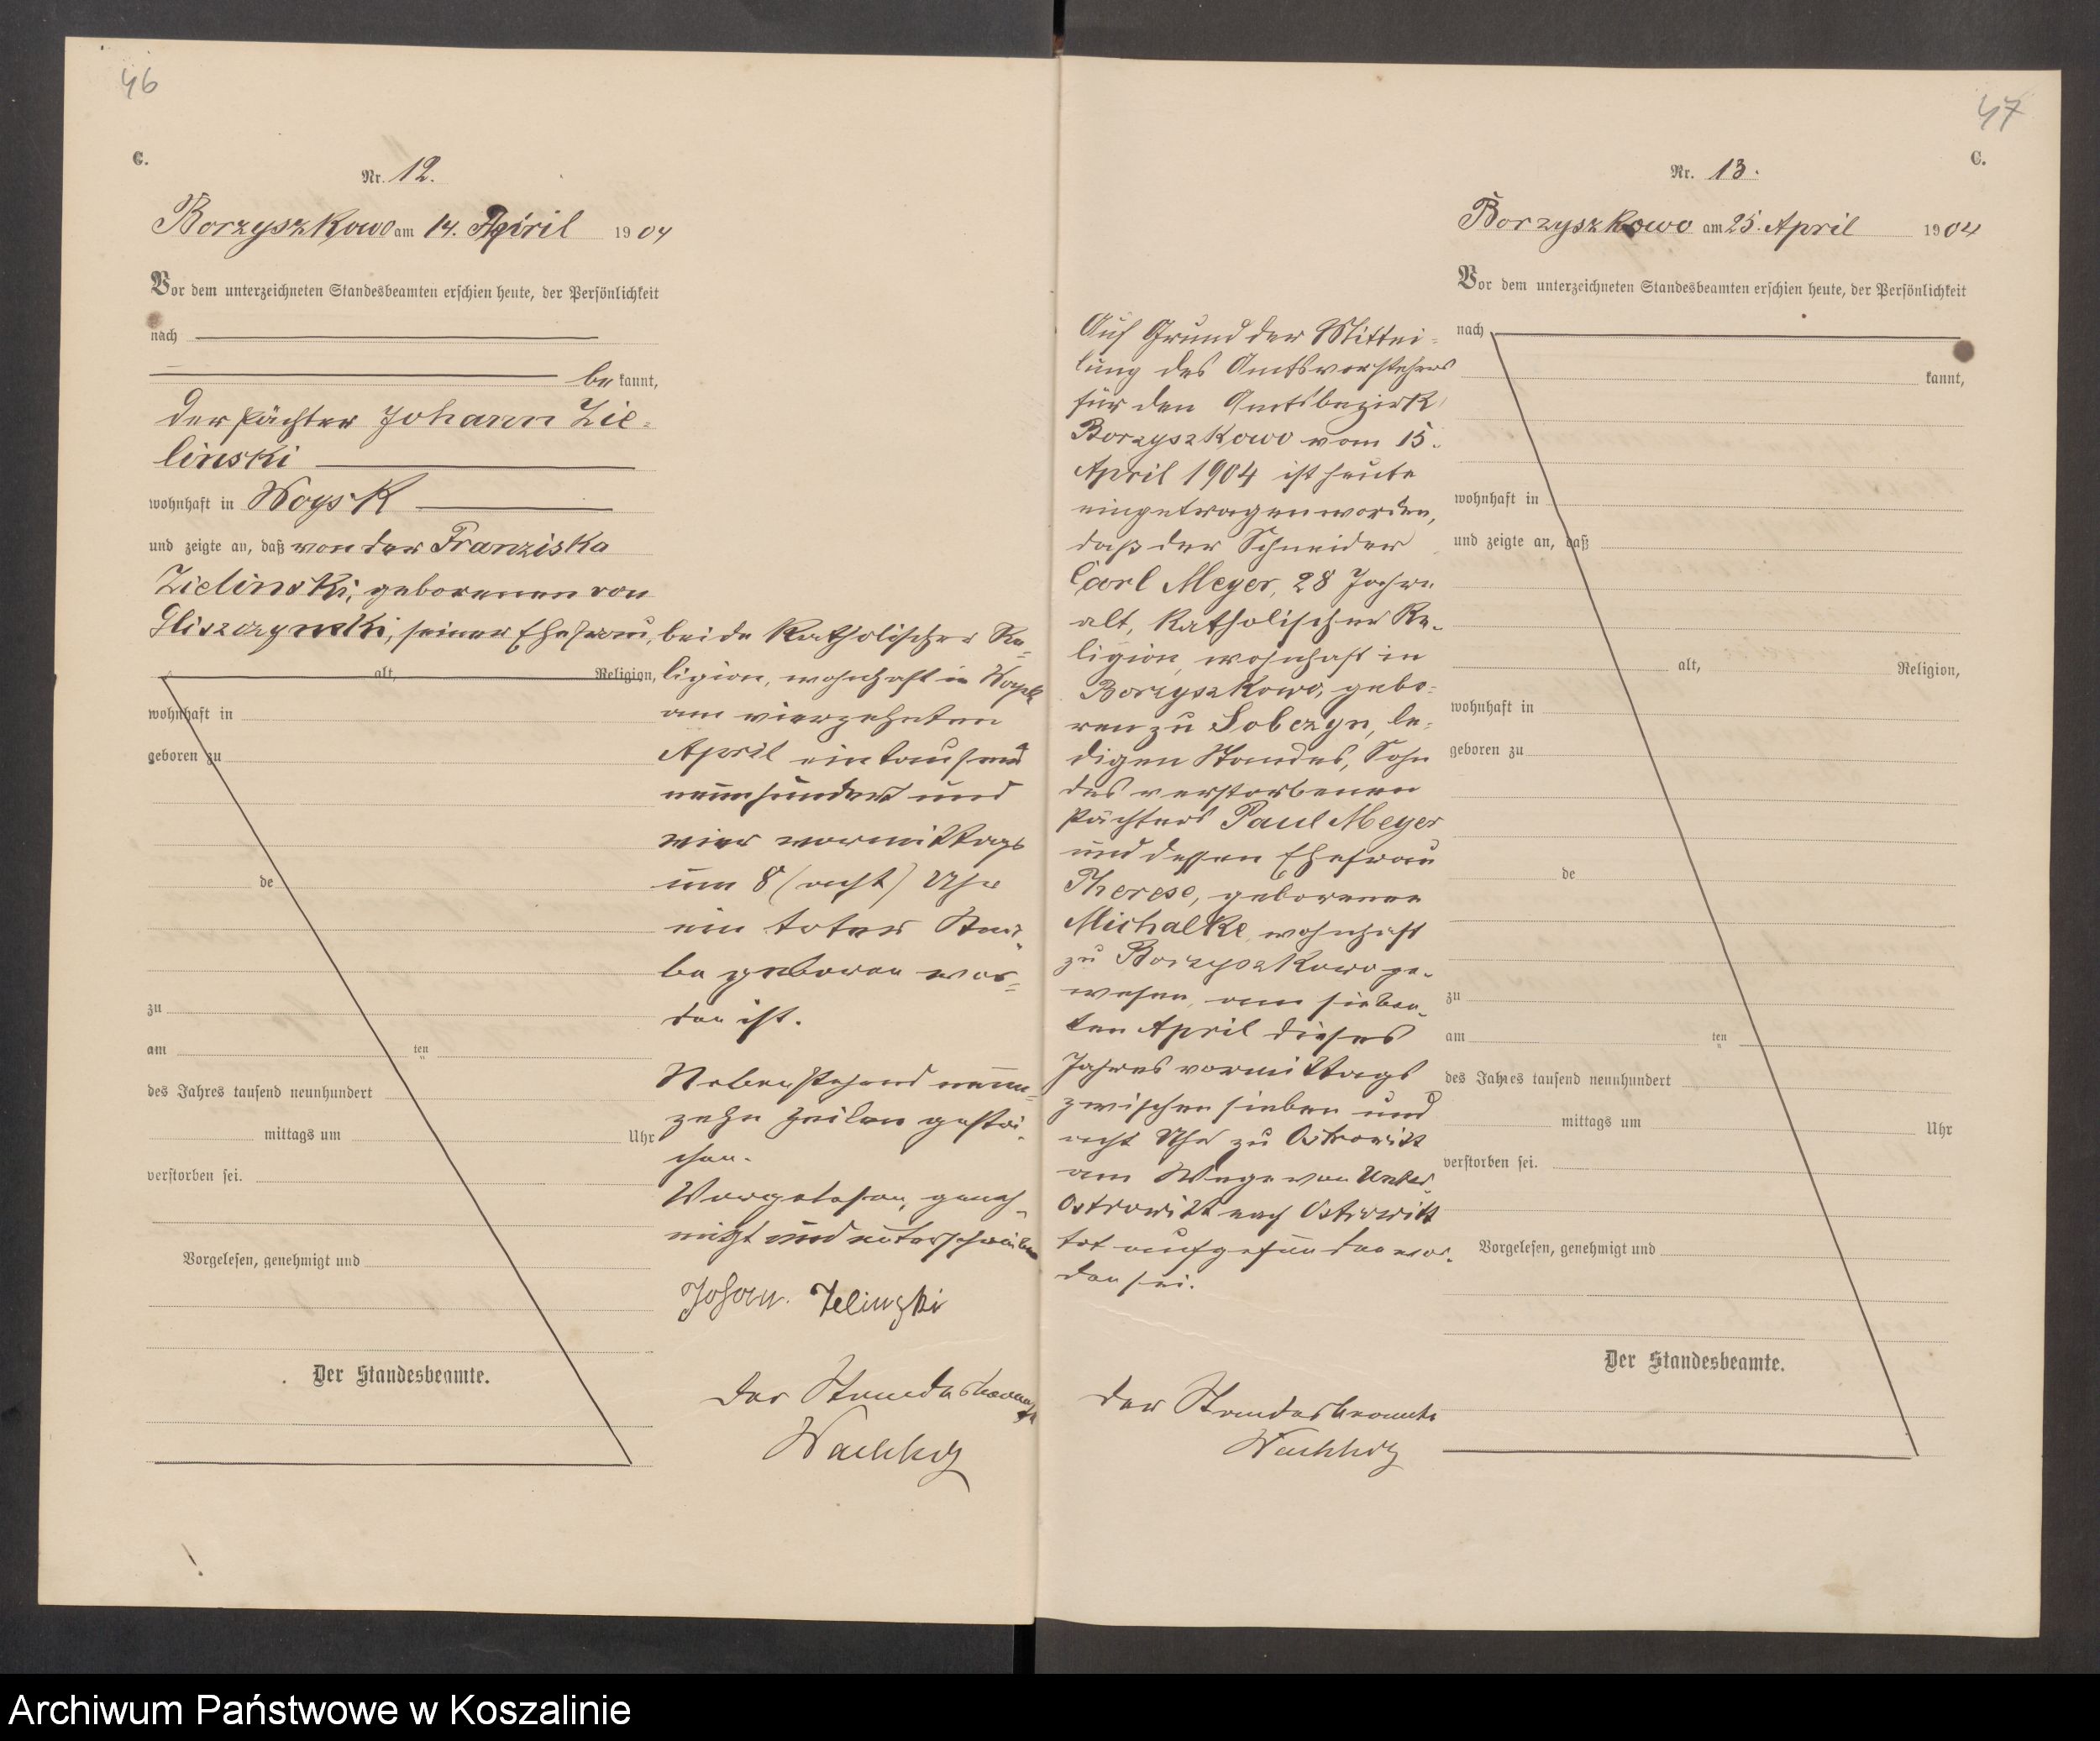 46
C.
Nr. 12.
Borzyszkowo am 14. April 1904
Vor dem unterzeichneten Standesbeamten erschien heute, der Persönlichkeit
nach
be kannt,
der Pächter Johann Zie-
linski
wohnhaft in Woysk
und zeigte an, daß von der Franziska
Zielinski, geborenen von
Gliszczynski, seiner Ehefrau, beide katholischer Re-
alt, Religion, ligion, wohnhaft in Woysk
wohnhaft in am vierzehnten
geboren zu April eintausend
neunhundert und
vier vormittags
de um 8 (acht) Uhr
ein toter Kna-
be geboren wor-
zu den ist.
am ten
Nebenstehend neun-
des Jahres tausend neunhundert
zehn Zeilen gestri-
mittags um Uhr
chen.
verstorben sei.
Vorgelesen, geneh-
migt und unterschrieben
Vorgelesen, genehmigt und
Johann Zelinzki
Der Standesbeamte.
Der Standesbeamte
Wachholz
47
C.
Nr. 13.
Borzyszkowo am 25. April 1904
Vor dem unterzeichneten Standesbeamten erschien heute, der Persönlichkeit
nach
kannt,
wohnhaft in
und zeigte an, daß
alt, Religion,
wohnhaft in
geboren zu
de
zu
am ten
des Jahres tausend neunhundert
mittags um Uhr
verstorben sei.
Vorgelesen, genehmigt und
Der Standesbeamte.
Auf Grund der Mittei-
lung des Amtsvorstehers
für den Amtsbezirk
Borzyszkowo vom 15.
April 1904 ist heute
eingetragen worden,
daß der Schneider
Carl Meyer, 28 Jahre
alt, katholischer Re-
ligion, wohnhaft in
Borzyszkowo, gebo-
ren zu Sobczyn, le-
digen Standes, Sohn
des verstorbenen
Pächters Paul Meyer
und dessen Ehefrau
Therese, geborenen
Michalke, wohnhaft
zu Borzyszkowo ge-
wesen, am sieben-
ten April dieses
Jahres vormittags
zwischen sieben und
acht Uhr zu Ostrowitt
am Wege von Unter-
Ostrowitt nach Ostrowitt
tot aufgefunden wor-
den sei.
Der Standesbeamte
Wachholz
Archiwum Państwowe w Koszalinie